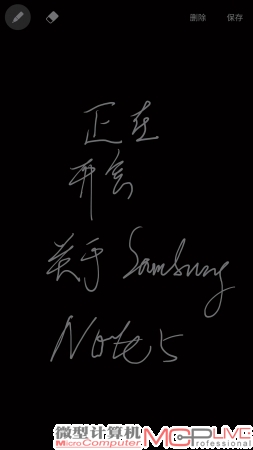 删除 保存
正在
开会
关于 Samsung
Note 5
微型计算机 MCPLIVE
MicroComputer Professional